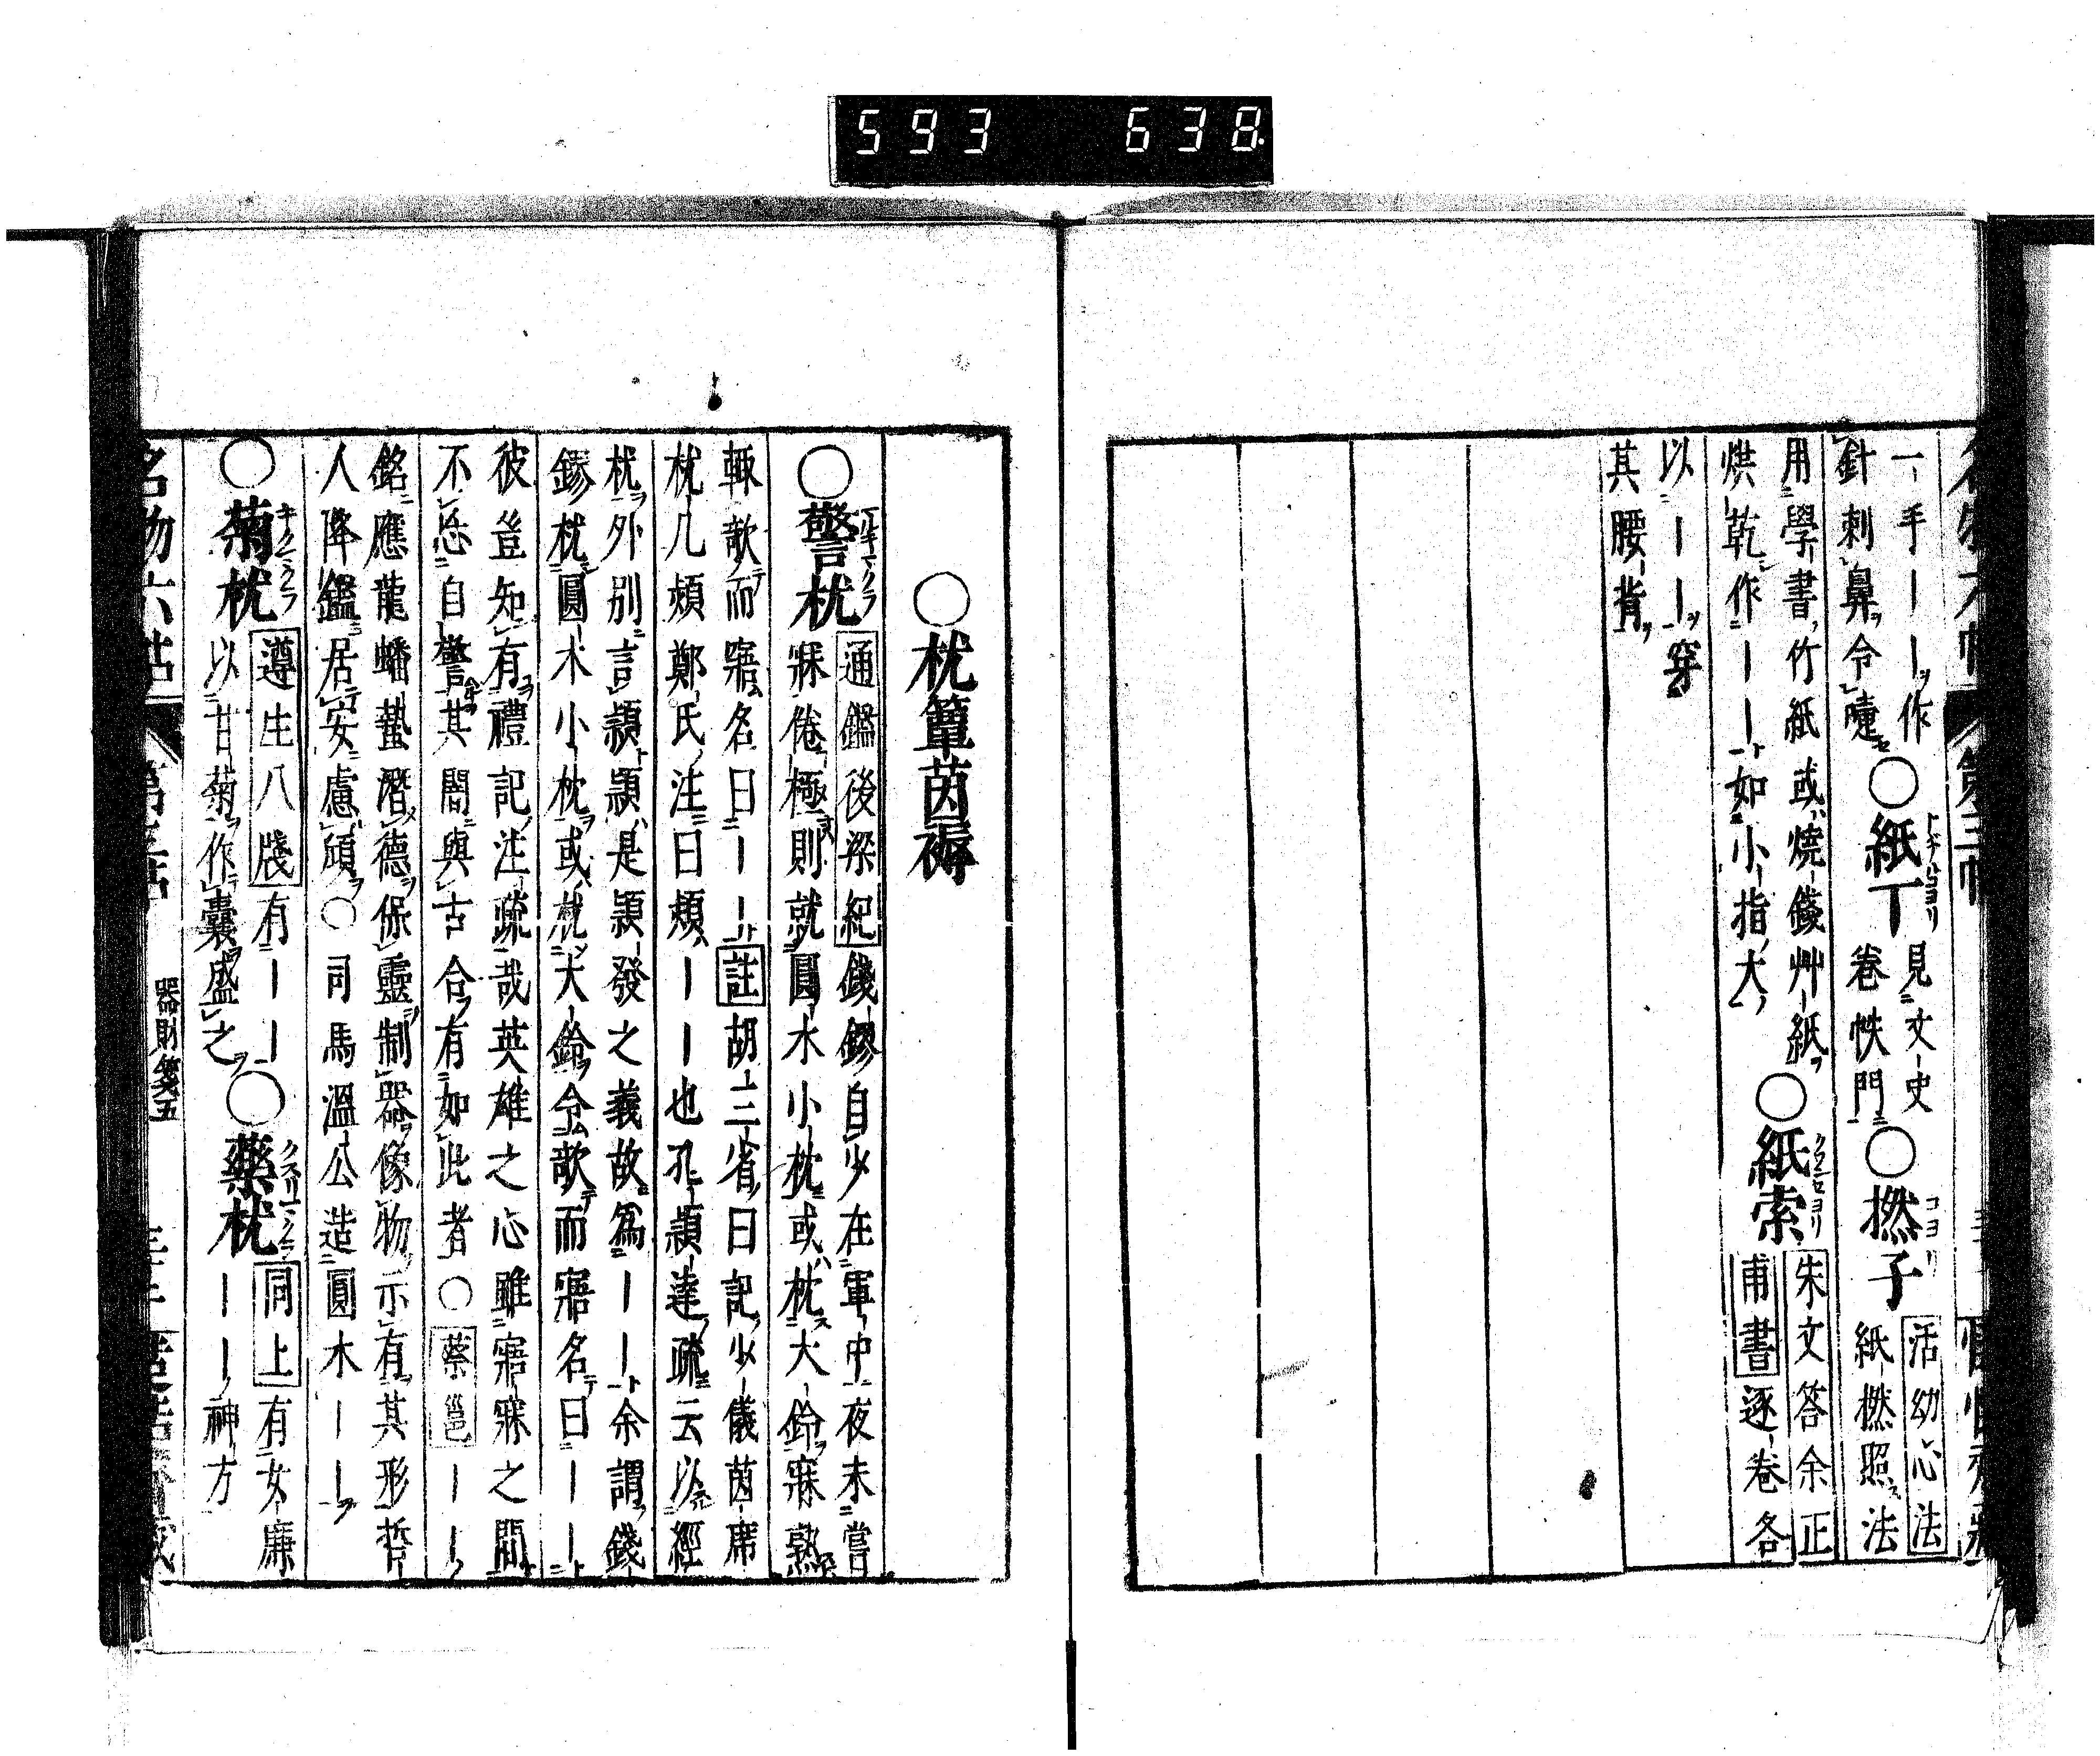 593 638
一手｜｜作
針刺鼻令嚏
○紙丁
見文史
卷帙門
○撚子
コヨリ
活幼心法
紙撚照法
用學書竹紙或燒錢艸紙
烘乾作｜｜如小指大
○紙索
朱文答余正
甫書逐卷各
以｜｜穿
其腰背
○枕簟茵褥
○警枕
通鑑後梁紀錢鏐自少在軍中夜未嘗
寐倦極則就圓木小枕或枕大鈴寐熟
輒欹而寤名曰｜｜註胡三省曰記少儀茵席
枕几熲鄭氏注曰熲｜｜也孔穎達疏云以經
枕外別言熲熲是熲發之義故爲｜｜余謂錢
鏐枕圓木小枕或枕大鈴令欹而寤名曰｜｜
彼豈知有禮記注疏哉英雄之心雖寤寐之間
不忘自警其闇與古合有如此者○蔡邕｜｜
銘應龍蟠蟄潛德保靈制器像物示有其形哲
人降鑑居安慮傾○司馬溫公造圓木｜｜
○菊枕
キクマクラ
遵生八牋有｜｜
以甘菊作囊盛之
○藥枕
クスリマクラ
同上有女廉
｜｜神方
名物六帖
器財箋五